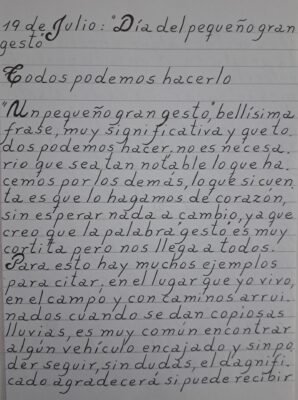 19 de Julio: "Día del pequeño gran
gesto
Todos podemos hacerlo
"Un pequeño gran gesto," bellísima
frase, muy significativa y que to
dos podemos hacer, no es necesa
rio que sea tan notable lo que ha
cemos por los demás, lo que si cuen
ta es que lo hagamos de corazón,
sin esperar nada a cambio, ya que
creo que la palabra gesto es muy
cortita pero nos llega a todos.
Para esto hay muchos ejemplos
para citar, en el lugar que yo vivo,
en el campo y con taminos arrui
nados cuando se dan copiosas
lluvias, es muy común encontrar
algún vehículo encajado y sin po
der seguir, sin dudas, el dagnifi
cado agradecerá si puede recibir